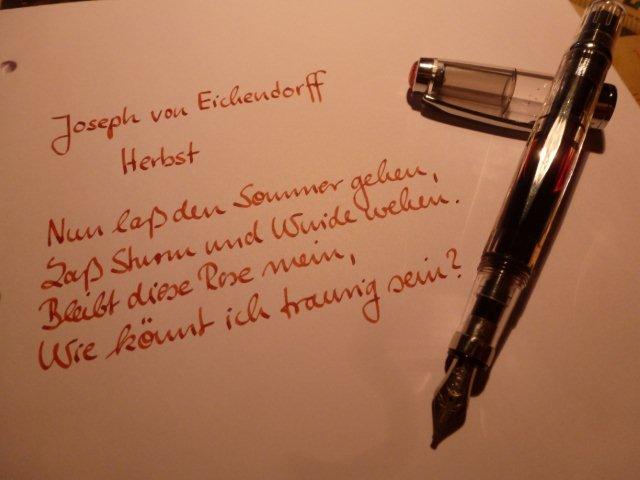 Joseph von Eichendorff
Herbst
Nun laß den Sommer gehen,
Laß Sturm und Winde wehen.
Bleibt diese Rose mein,
Wie könnt ich traurig sein?